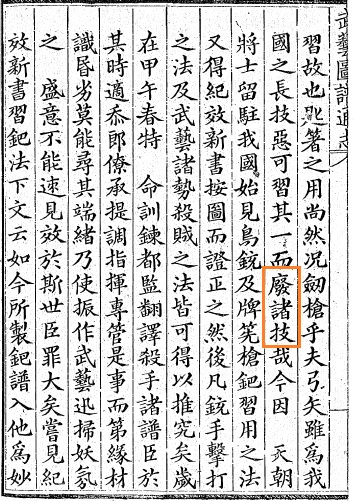 武藝圖譜通志
習故也匙箸之用尚然況劒槍乎夫弓矢雖為我
國之長技惡可習其一而廢諸技哉今因 天朝
將士留駐我國始見鳥銃及牌筅槍鈀習用之法
又得紀效新書按圖而證正之然後凡銃手擊打
之法及武藝諸勢殺賊之法皆可得以推究矣歲
在甲午春特 命訓鍊都監翻譯殺手諸譜臣於
其時適忝郎僚承提調指揮專管是事而第緣材
識昬劣莫能尋其端緒乃使振作武藝迅掃妖氛
之 盛意不能速見效於斯世臣罪大矣嘗見紀
效新書習鈀法下文云如今所製鈀譜入他爲妙